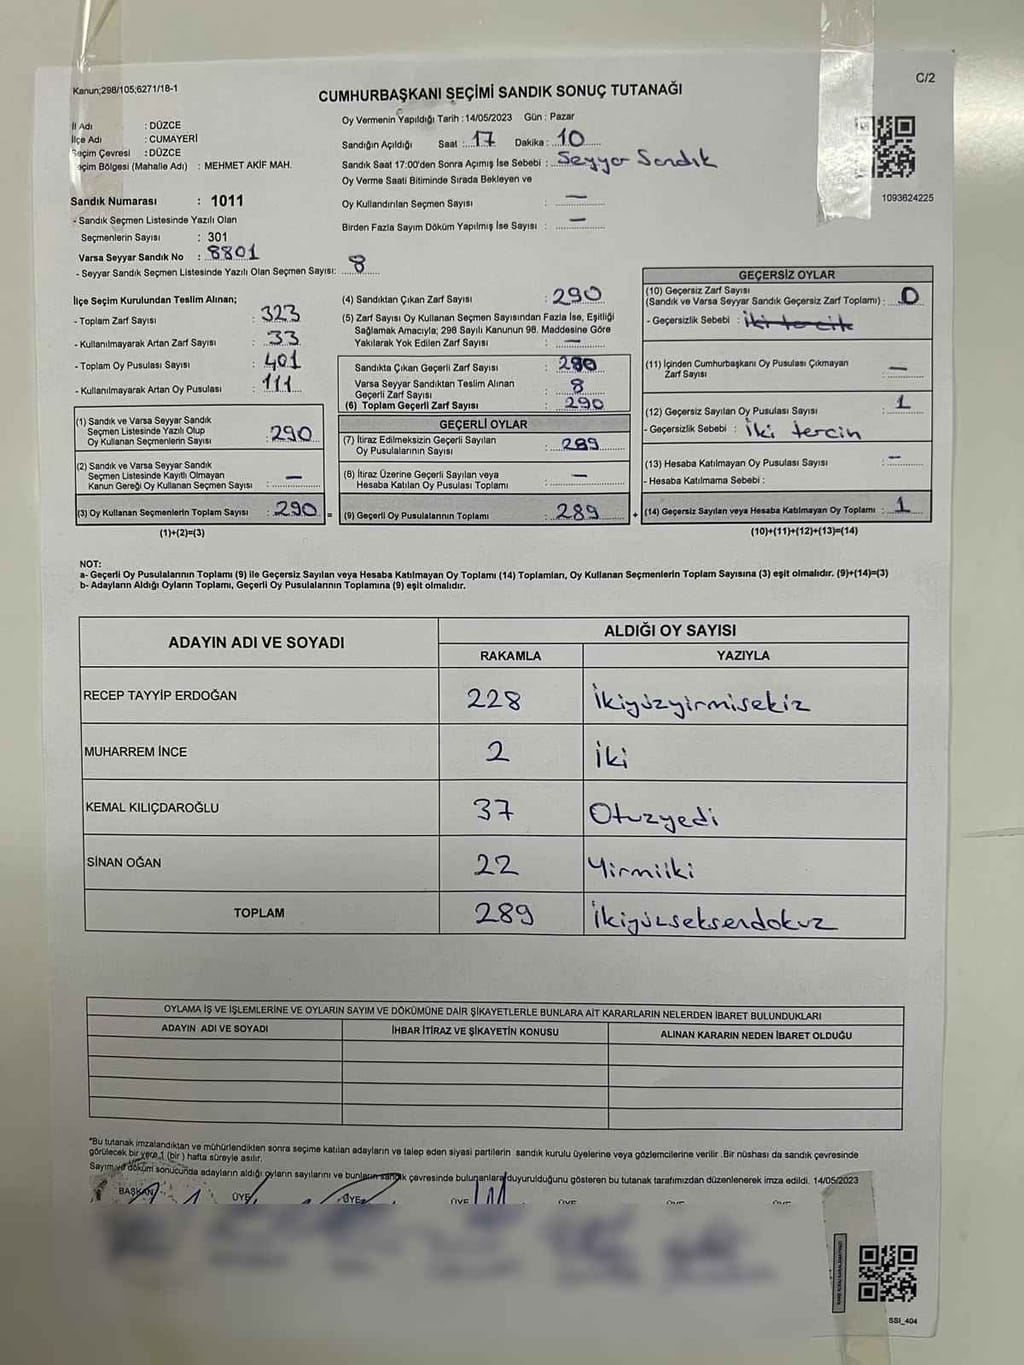 Kanun;298/105;6271/18-1
C/2
CUMHURBAŞKANI SEÇİMİ SANDIK SONUÇ TUTANAĞI
İl Adı : DÜZCE
İlçe Adı : CUMAYERİ
Seçim Çevresi : DÜZCE
Seçim Bölgesi (Mahalle Adı) : MEHMET AKİF MAH.
Oy Vermenin Yapıldığı Tarih : 14/05/2023 Gün : Pazar
Sandığın Açıldığı Saat : 17 Dakika : 10
Sandık Saat 17:00'den Sonra Açımış İse Sebebi : Seyyar Sandık
Oy Verme Saati Bitiminde Sırada Bekleyen ve
Oy Kullandırılan Seçmen Sayısı : —
Birden Fazla Sayım Döküm Yapılmış İse Sayısı : —
1093624225
Sandık Numarası : 1011
- Sandık Seçmen Listesinde Yazılı Olan
Seçmenlerin Sayısı : 301
Varsa Seyyar Sandık No : 8801
- Seyyar Sandık Seçmen Listesinde Yazılı Olan Seçmen Sayısı: 8
İlçe Seçim Kurulundan Teslim Alınan;
- Toplam Zarf Sayısı : 323
- Kullanılmayarak Artan Zarf Sayısı : 33
- Toplam Oy Pusulası Sayısı : 401
- Kullanılmayarak Artan Oy Pusulası : 111
(1) Sandık ve Varsa Seyyar Sandık
Seçmen Listesinde Yazılı Olup
Oy Kullanan Seçmenlerin Sayısı : 290
(2) Sandık ve Varsa Seyyar Sandık
Seçmen Listesinde Kayıtlı Olmayan
Kanun Gereği Oy Kullanan Seçmen Sayısı : —
(3) Oy Kullanan Seçmenlerin Toplam Sayısı : 290 =
(1)+(2)=(3)
(4) Sandıktan Çıkan Zarf Sayısı : 290
(5) Zarf Sayısı Oy Kullanan Seçmen Sayısından Fazla İse, Eşitliği
Sağlamak Amacıyla; 298 Sayılı Kanunun 98. Maddesine Göre
Yakılarak Yok Edilen Zarf Sayısı : —
Sandıkta Çıkan Geçerli Zarf Sayısı :
Varsa Seyyar Sandıktan Teslim Alınan
Geçerli Zarf Sayısı : 8
(6) Toplam Geçerli Zarf Sayısı : 290
GEÇERLİ OYLAR
(7) İtiraz Edilmeksizin Geçerli Sayılan
Oy Pusulalarının Sayısı : 289
(8) İtiraz Üzerine Geçerli Sayılan veya
Hesaba Katılan Oy Pusulası Toplamı : —
(9) Geçerli Oy Pusulalarının Toplamı : 289 +
GEÇERSİZ OYLAR
(10) Geçersiz Zarf Sayısı
(Sandık ve Varsa Seyyar Sandık Geçersiz Zarf Toplamı) : 0
- Geçersizlik Sebebi : İki tercih
(11) İçinden Cumhurbaşkanı Oy Pusulası Çıkmayan
Zarf Sayısı : —
(12) Geçersiz Sayılan Oy Pusulası Sayısı : 1
- Geçersizlik Sebebi : İki tercih
(13) Hesaba Katılmayan Oy Pusulası Sayısı : —
- Hesaba Katılmama Sebebi :
(14) Geçersiz Sayılan veya Hesaba Katılmayan Oy Toplamı : 1
(10)+(11)+(12)+(13)=(14)
NOT:
a- Geçerli Oy Pusulalarının Toplamı (9) ile Geçersiz Sayılan veya Hesaba Katılmayan Oy Toplamı (14) Toplamları, Oy Kullanan Seçmenlerin Toplam Sayısına (3) eşit olmalıdır. (9)+(14)=(3)
b- Adayların Aldığı Oyların Toplamı, Geçerli Oy Pusulalarının Toplamına (9) eşit olmalıdır.
ADAYIN ADI VE SOYADI
ALDIĞI OY SAYISI
RAKAMLA YAZIYLA
RECEP TAYYİP ERDOĞAN 228 İkiyüzyirmisekiz
MUHARREM İNCE 2 İki
KEMAL KILIÇDAROĞLU 37 Otuzyedi
SİNAN OĞAN 22 Yirmiiki
TOPLAM 289 İkiyüzseksendokuz
OYLAMA İŞ VE İŞLEMLERİNE VE OYLARIN SAYIM VE DÖKÜMÜNE DAİR ŞİKAYETLERLE BUNLARA AİT KARARLARIN NELERDEN İBARET BULUNDUKLARI
ADAYIN ADI VE SOYADI İHBAR İTİRAZ VE ŞİKAYETİN KONUSU ALINAN KARARIN NEDEN İBARET OLDUĞU
*Bu tutanak imzalandıktan ve mühürlendikten sonra seçime katılan adayların ve talep eden siyasi partilerin sandık kurulu üyelerine veya gözlemcilerine verilir .Bir nüshası da sandık çevresinde
görülecek bir yere 1 (bir) hafta süreyle asılır.
Sayım ve döküm sonucunda adayların aldığı oyların sayılarını ve bunların sandık çevresinde bulunanlara duyurulduğunu gösteren bu tutanak tarafımızdan düzenlenerek imza edildi. 14/05/2023
BAŞKAN ÜYE ÜYE ÜYE ÜYE ÜYE ÜYE
SSI_404